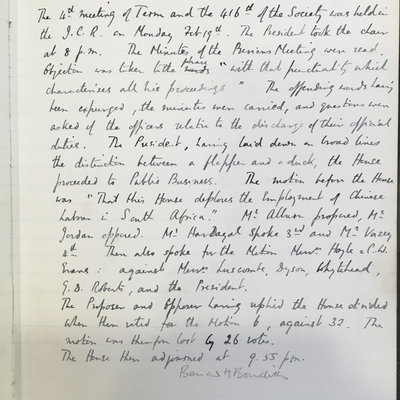 The 4th meeting of Term and the 416th of the Society was held in
the J.C.R. on Monday Feb 19th. The President took the chair
at 8 p.m. The Minutes of the Previous Meeting were read.
Objection was taken to the phrase "with that punctuality which
characterises all his proceedings" The offending words having
been expunged, the minutes were carried, and questions were
asked of the officers relative to the discharge of their official
duties. The President, having laid down on broad lines
the distinction between a flapper and a duck, the House
proceeded to Public Business. The motion before the House
was "That this House deplores the Employment of Chinese
Labour in South Africa." Mr proposed, Mr
Jordan opposed. Mr spoke 3rd and Mr Vacey
4th. There also spoke for the Motion Messrs. Hoyle & C.W.
Evans: against Messrs. Luscombe, Dyson, Whytehead,
G.D. Roberts, and the President.
The Proposer and Opposer having replied the House divided
when there voted for the Motion 6, against 32. The
motion was therefore lost by 26 votes.
The House then adjourned at 9.55 p.m.